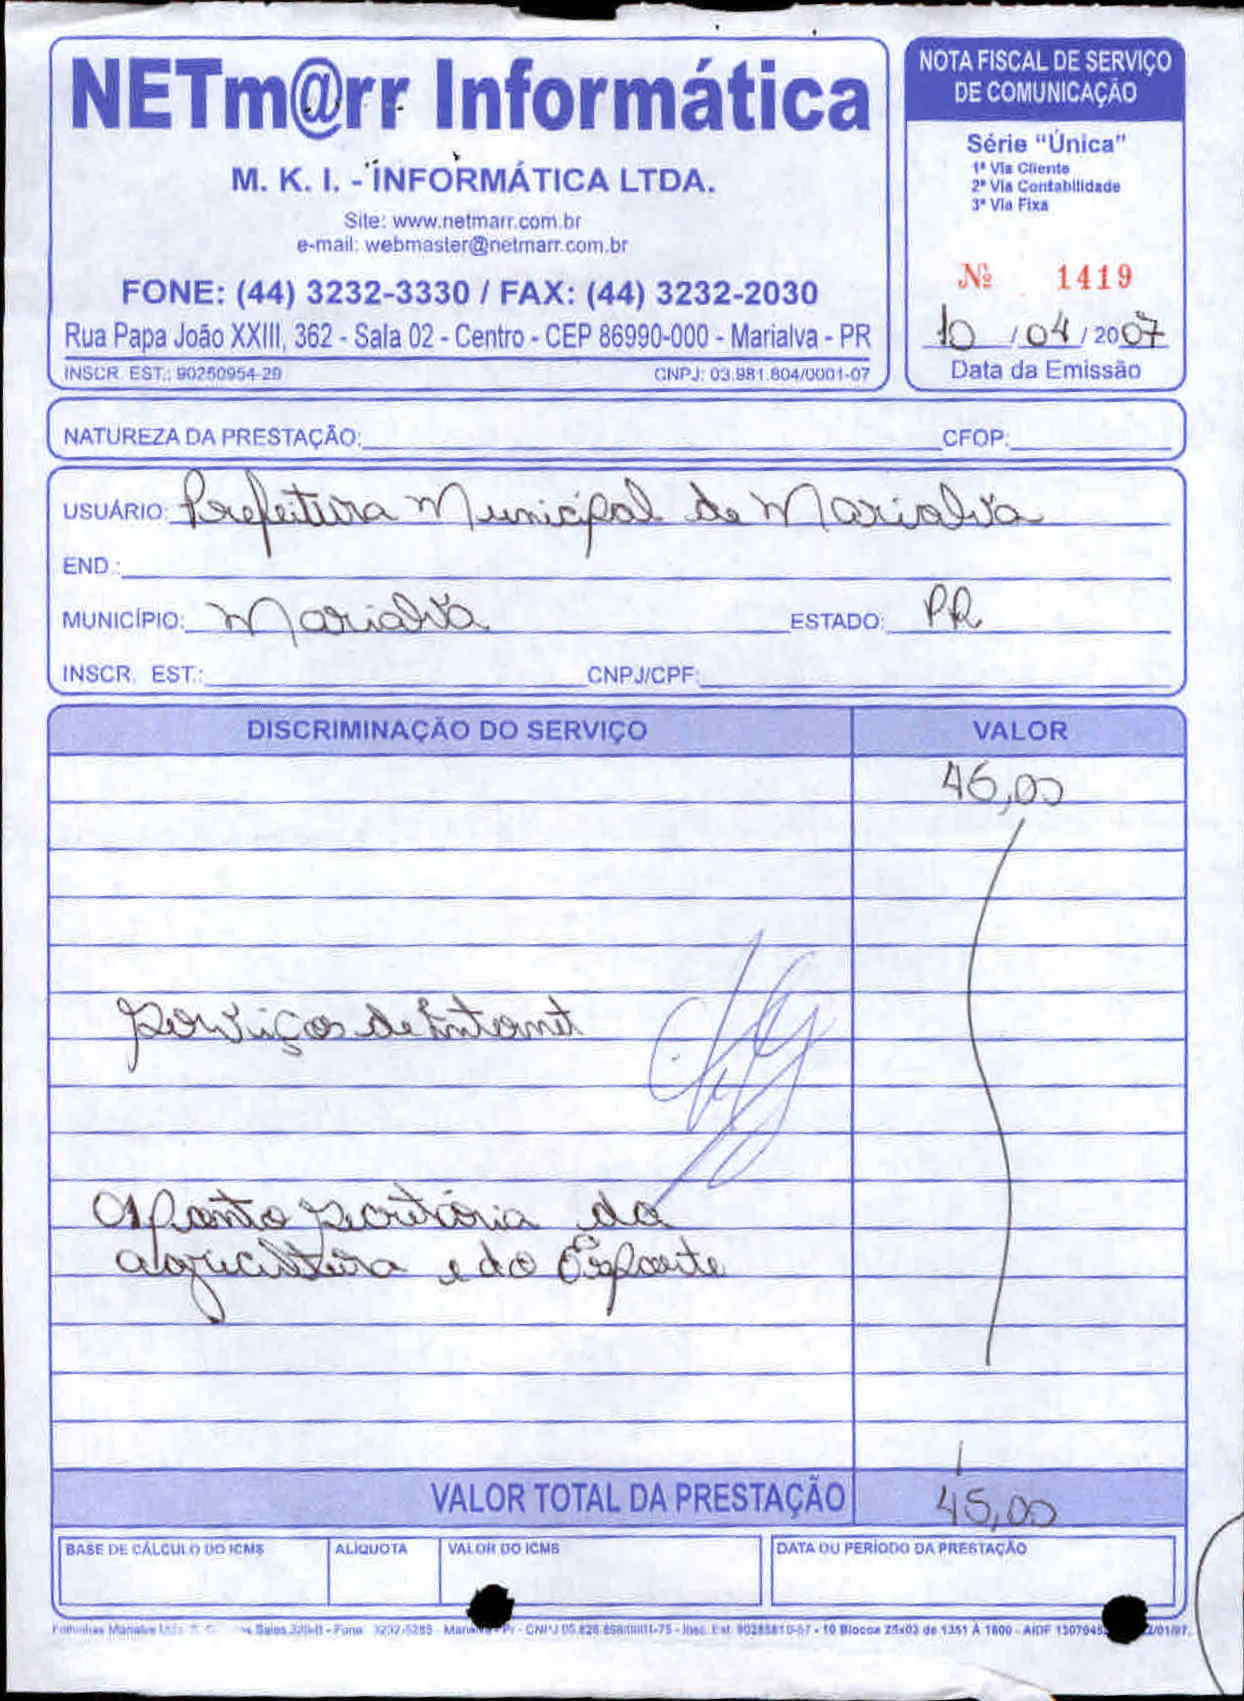 NETm@rr Informática
M. K. I. - INFORMÁTICA LTDA.
Site: www.netmarr.com.br
e-mail: webmaster@netmarr.com.br
FONE: (44) 3232-3330 / FAX: (44) 3232-2030
Rua Papa João XXIII, 362 - Sala 02 - Centro - CEP 86990-000 - Marialva - PR
INSCR. EST.: 90250954-29 CNPJ: 03.981.804/0001-07
NOTA FISCAL DE SERVIÇO
DE COMUNICAÇÃO
Série "Única"
1ª Via Cliente
2ª Via Contabilidade
3ª Via Fixa
Nº 1419
10 / 04 / 2007
Data da Emissão
NATUREZA DA PRESTAÇÃO: CFOP:
USUÁRIO: Prefeitura Municipal de Marialva
END.:
MUNICÍPIO: Marialva ESTADO: PR
INSCR. EST.: CNPJ/CPF:
DISCRIMINAÇÃO DO SERVIÇO VALOR
45,00
Serviços de Internet
ponto secretária da
agricultura e do Esporte
VALOR TOTAL DA PRESTAÇÃO 45,00
BASE DE CÁLCULO DO ICMS ALÍQUOTA VALOR DO ICMS DATA OU PERÍODO DA PRESTAÇÃO
- 10 Blocos 25x03 de 1351 À 1600 - AIDF